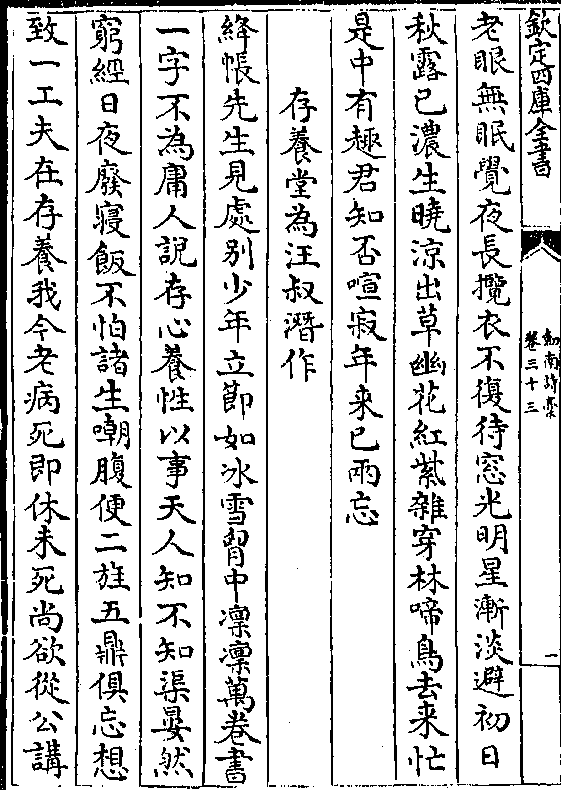 欽定四庫全書
劍南詩槀
卷三十三
一
老眼無眠覺夜長攬衣不復待窓光明星漸淡避初日
秋露已濃生曉涼出草幽花紅紫雜穿林啼鳥去来忙
是中有趣君知否喧寂年来已兩忘
存養堂為汪叔潛作
絳帳先生見處别少年立節如冰雪胷中凛凛萬卷書
一字不為庸人説存心養性以事天人知不知渠晏然
窮經日夜廢寢飯不怕諸生嘲腹便二旌五鼎俱忘想
致一工夫在存養我今老病死即休未死尚欲從公講